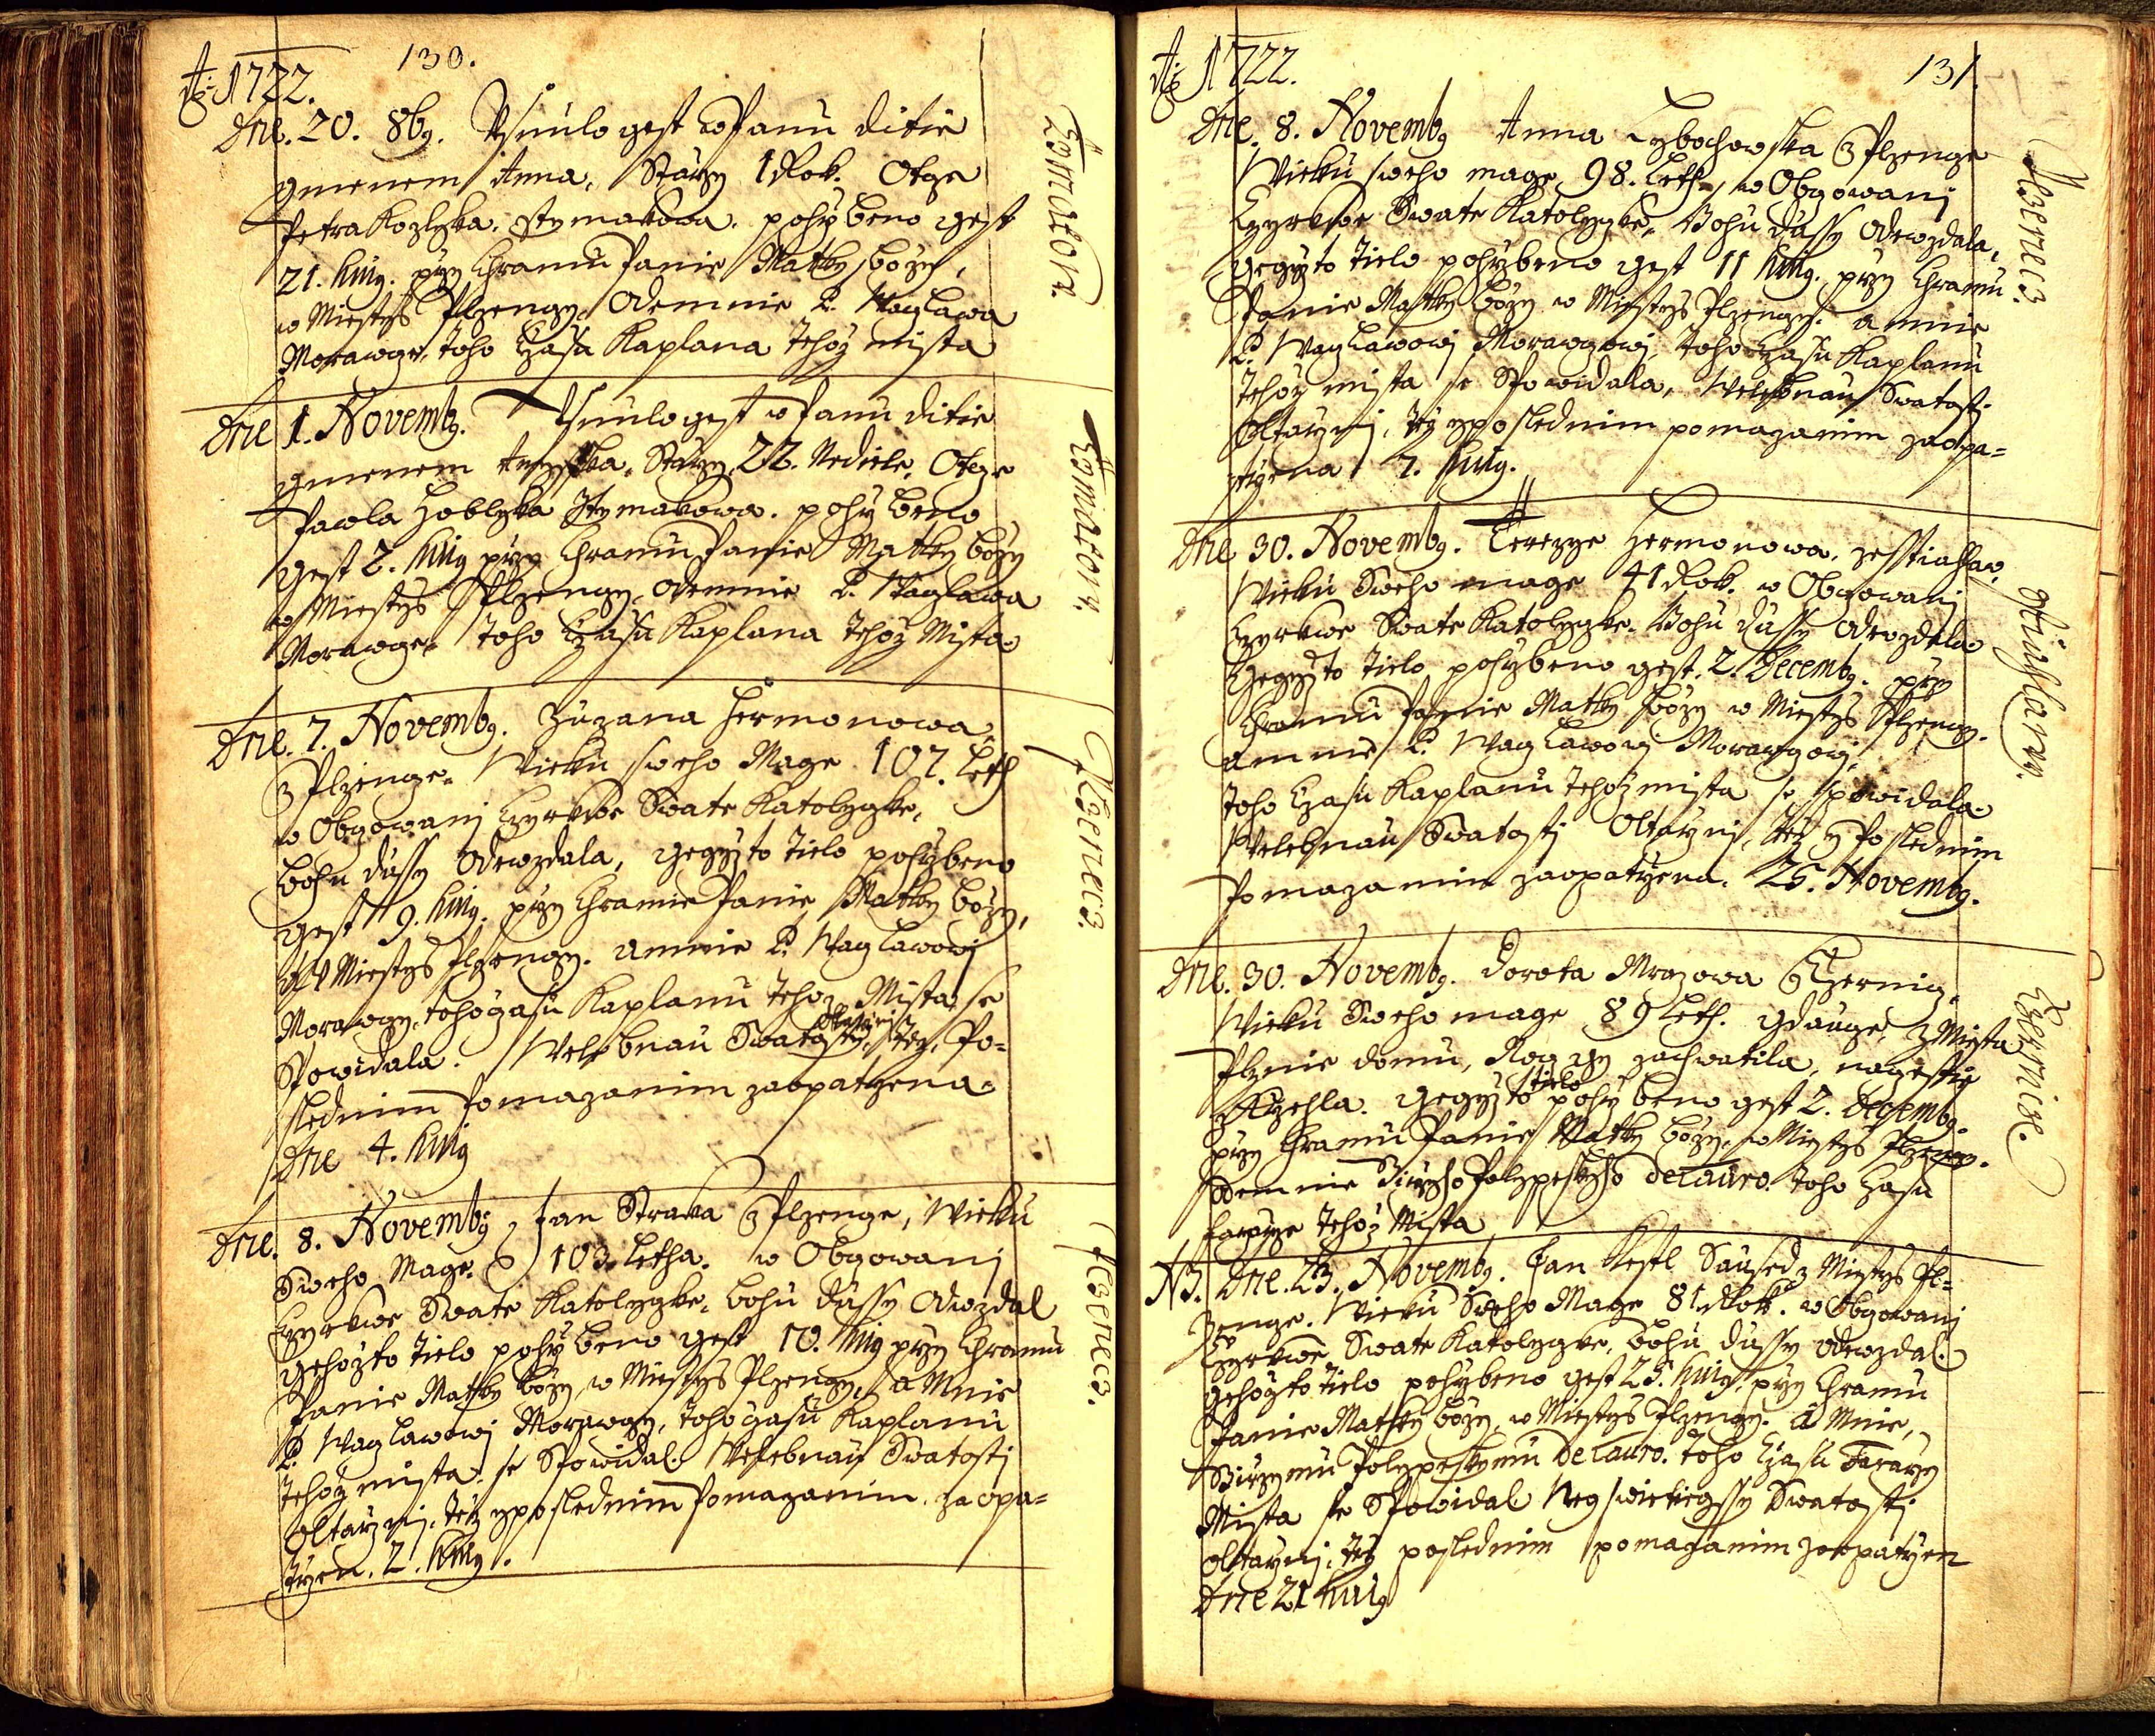 Aõ 1722.
130.
Dne. 20. 8bg. Usnulo gest w Panu ditie
gmenem Anna, Starzy 1 Rok. Otcze
Petra Kozlyka, z Stymakowa. pohrzbeno gest
21. huig. przy Chramu Panie Matky bozy,
w Miestys Plzengy, Odemnie P. Waglawa
Morawge, toho Czasu Kaplana tehoz mista
Dne 1. Novembg. Usnulo gest w Panu ditie
gmenem Starzy 22. Nediele, Otcze
Pawla Hoblyka Stymakowa. pohrzbeno
gest 2. huig przy Chramu Panie Matky bozy
w Miestys Plzengy, Odemnie P. Waglawa
Morawge, toho Czasu Kaplana tehoz Mista
Dne. 7. Novembg. Zuzana Hermonowa
z Plzenge. Wieku sweho Mage 107. Leth
w Obgowanj Czyrkwe Swate Katolygke,
bohu dussy Odewzdala, gegizto tielo pohrzbeno
gest 9. huig. przy Chramie Panie Matky bozy,
w Miestys Plzengy. amnie P. Waglawowj
Morawgy, toho Czasu Kaplanu tehoz Mista se
Spowidala. Welebnau Swatostj Oltarznj, tez, Po=
slednim Pomazanim zaopatrzena
Dne 4. huig
Dne. 8. Novembg, Jan Straka z Plzenge, Wieku
Sweho Mage. 103. Letha. w Obgowanj
Czyrkwe Swate Katolygke, bohu dussy Odewzdal
gehozto tielo pohrzbeno gest 10. huig przy Chramu
Panie Matky bozy w Miestys Plzengy, a Mnie
P. Waglawowj Morawgy, toho Czasu Kaplanu
tehoz mista. se Spowidal. Welebnau Swatostj
oltarznj, tez yposlednim Pomazanim zaopa=
trzen. 2. huig.
Plzenecz.
Plzenecz.
Aõ 1722.
131.
Dne. 8. Novembg Anna Lybochowska z Plzenge
Wieku sweho mage 98. Leth, w Obgowanj
Czyrkwe Swate Katolygke, Bohu dussy Odewzdala,
gegizto tielo pohrzbeno gest 11 huig. przy Chramu
Panie Matky bozy w Miestys Plzengy. amnie
P. Waglawowj Morawgowj, toho Czasu Kaplanu
tehoz mista se Spowidala, Welebnau Swatostj
Oltarznj, tez yposlednim pomazanim zaopa=
trzena 7. huig.
Plzenecz.
Dne 30. Novembg. Terezye Hermonowa, ze Stiahlaw,
Wieku Sweho mage 41 Rok. w Obgowanj
Czyrkwe Swate Katolygke, Bohu dussy Odewzdala
Gegizto tielo pohrzbeno gest. 2. Decembg. przy
Chramu Panie Matky bozy w Miestys Plzengy.
amnie P. Waglawowj Morawgowj,
toho Czasu Kaplanu tehoz mista se spowidala
Welebnau Swatostj Oltarznj, tez y Poslednim
Pomazanim zaopatrzena. 25. Novembg.
Dne. 30. Novembg. Dorota Mrazowa z Czernicz,
Wieku Sweho mage 89 Leth. gdauge, z Miesta
Plznie domu, zachwatila, na gestie
gegizto tielo pohrzbeno gest 2. Decembg.
przy Chramu Panie Matky bozy, w Miestys Plzengy.
Odemnie de Lauro. toho Czasu
Fararze tehoz Mista
Czernicze.
N3. Dne. 23. Novembg. Jan Kestl Saused z Miestys Pl=
zenge. Wieku Sweho Mage 81. Rok. w Obgowanj
Czyrkwe Swate Katolygke, bohu dussy odewzdal.
gehozto tielo pohrzbeno gest 25. huig, przy Chramu
Panie Matky bozy, w Miestys Plzengy. a Mnie,
de Lauro. toho Czasu Fararzy
Mista se Spowidal Neyswietiegssy Swatostj
oltarznj, tez poslednim pomazanim zaopatrzen
Dne 21 huig